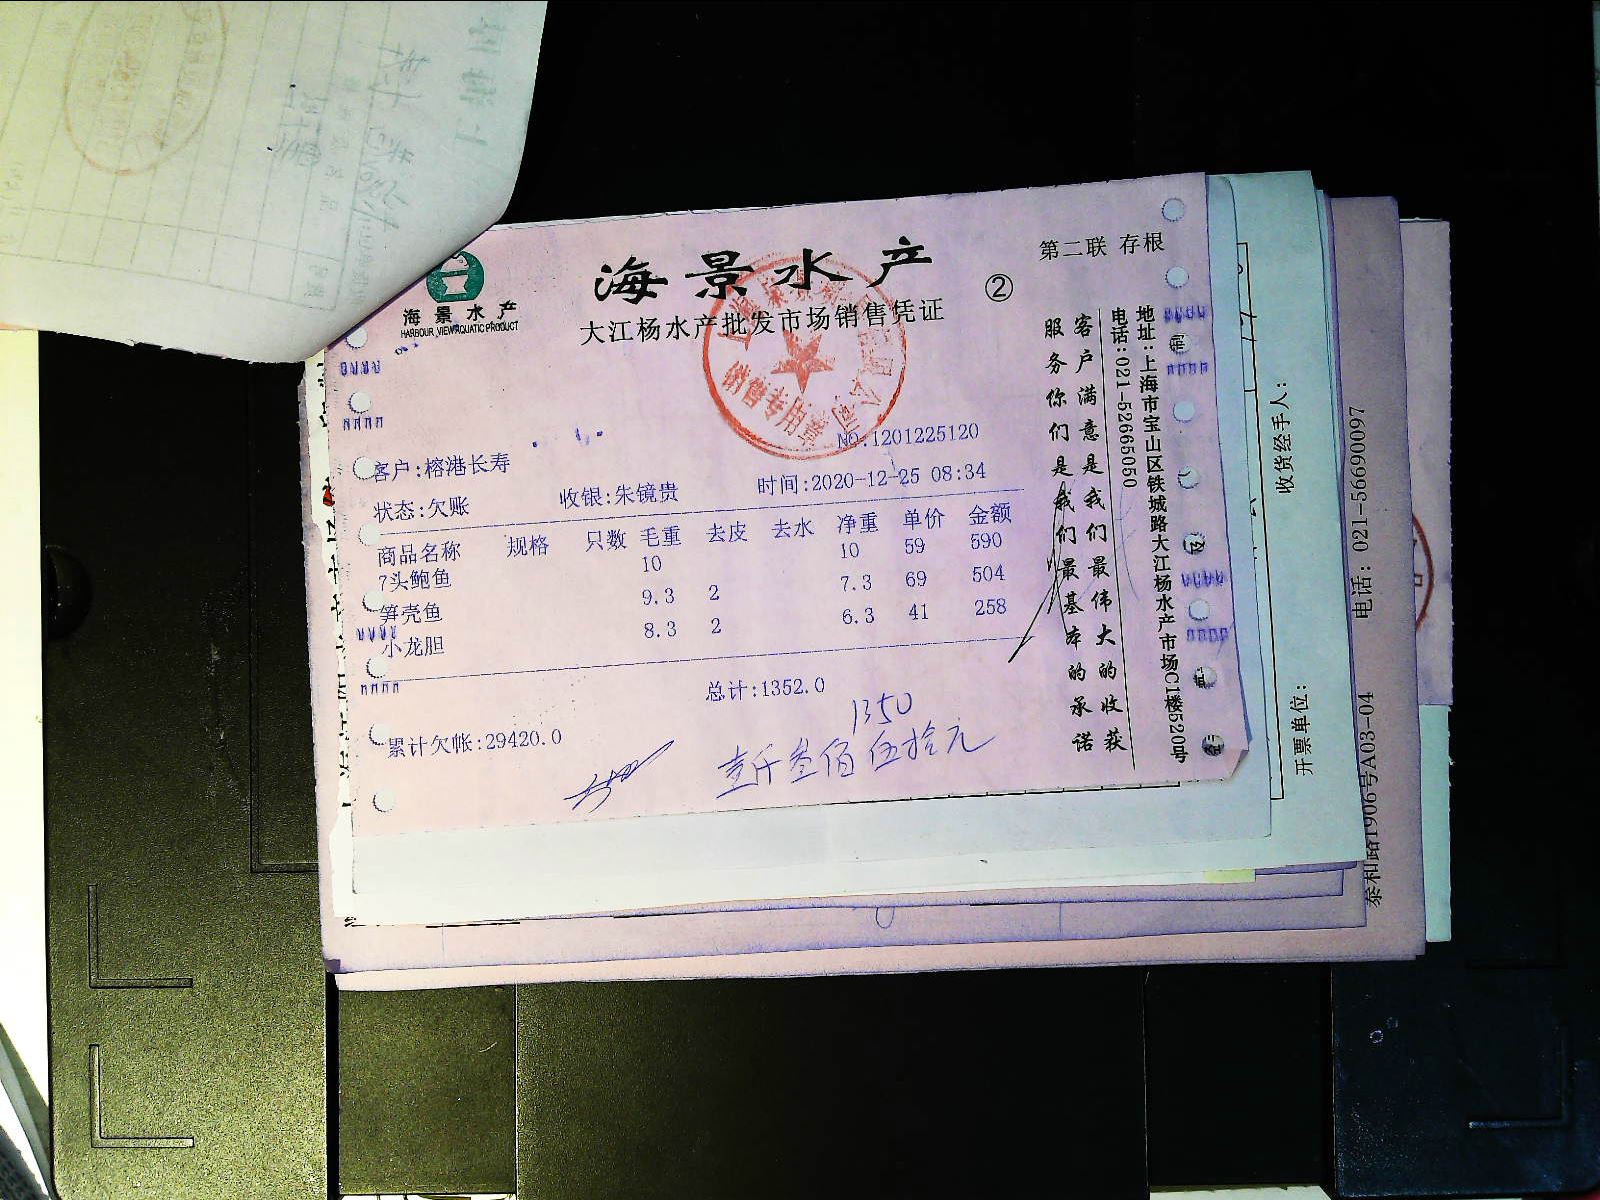 海景水产
HARBOUR VIEW AQUATIC PRODUCT
海景水产
大江杨水产批发市场销售凭证
②
第二联 存根
销售专用
NO.1201225120
客户:榕港长寿
时间:2020-12-25 08:34
状态:欠账 收银:朱镜贵
商品名称 规格 只数 毛重 去皮 去水 净重 单价 金额
7头鲍鱼 10 10 59 590
笋壳鱼 9.3 2 7.3 69 504
小龙胆 8.3 2 6.3 41 258
总计:1352.0
1350
累计欠帐:29420.0
壹仟叁佰伍拾元
服务你们是我们最基本的承诺
客户满意是我们最伟大的收获
电话:021-52665050
地址:上海市宝山区铁城路大江杨水产市场C1楼520号
收货经手人:
开票单位:
电话: 021-56690097
泰和路1906号A03-04